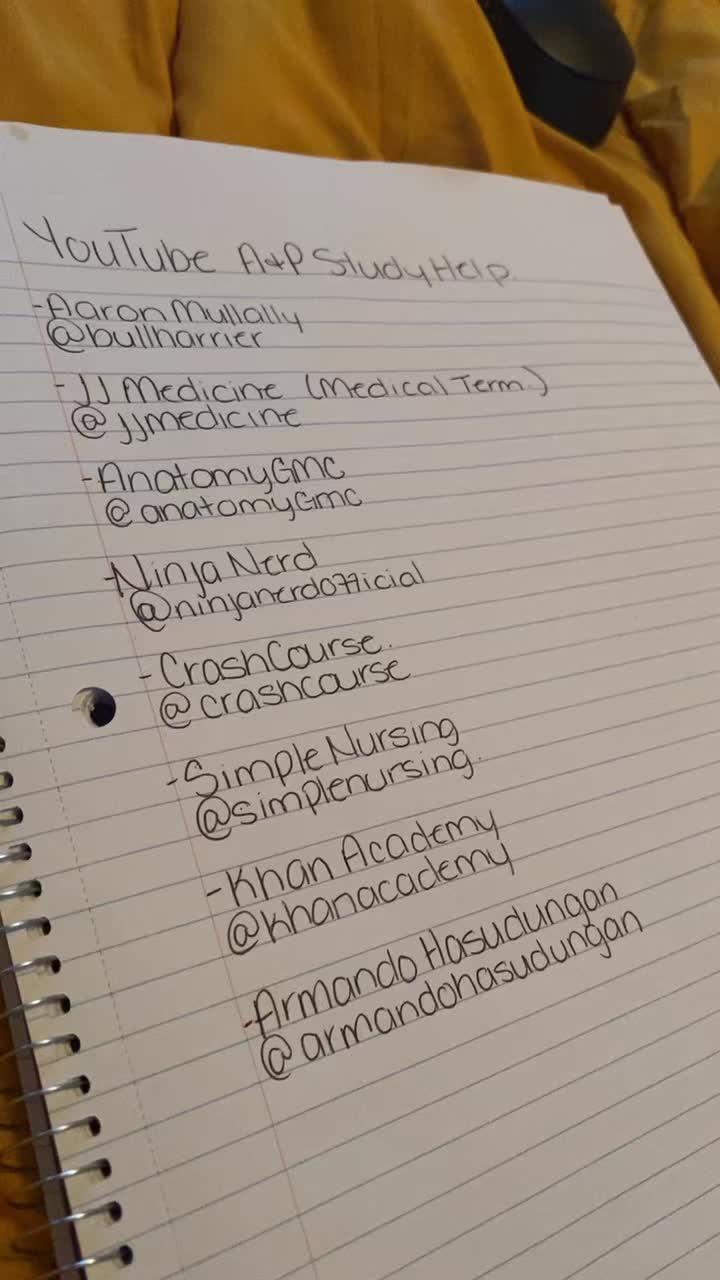 YouTube A+P Study Help
-Aaron Mullally
@bullharrier
-JJ Medicine (Medical Term.)
@jjmedicine
-AnatomyGMC
@anatomyGmc
-Ninja Nerd
@ninjanerdofficial
-CrashCourse.
@crashcourse
-Simple Nursing
@simplenursing.
-Khan Academy
@khanacademy
-Armando Hasudungan
@armandohasudungan